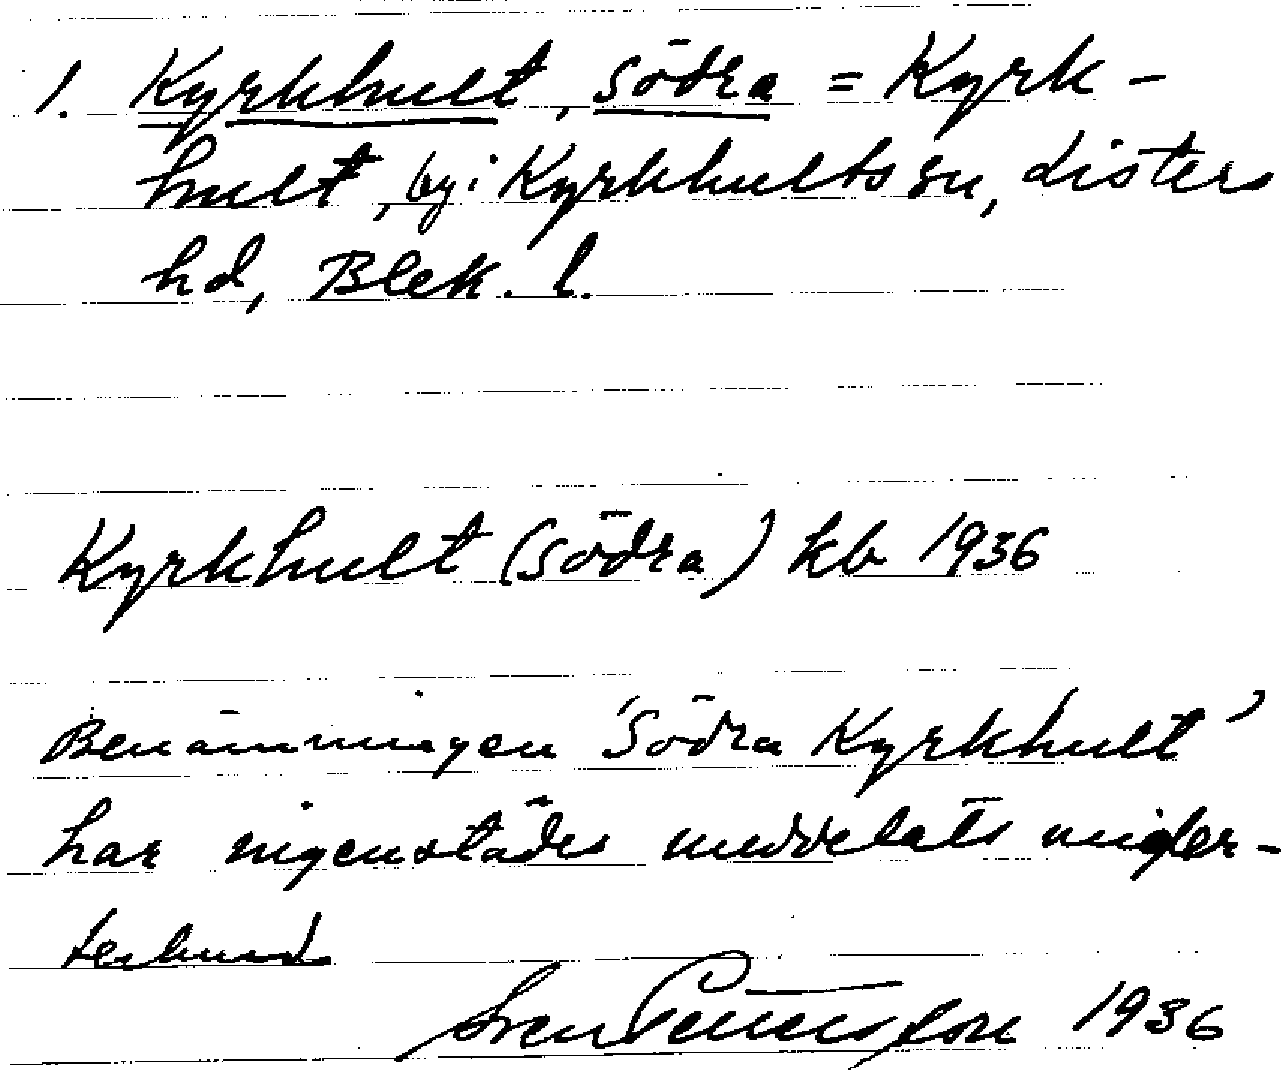 1. Kyrkhult, Södra = Kyrk-
hult, by i Kyrkhults sn, Listers
hd, Blek. l.
Kyrkhult (Södra) kb 1936
Benämningen 'Södra Kyrkhult'
har ingenstädes meddelats under-
tecknad
Sven Pettersson 1936